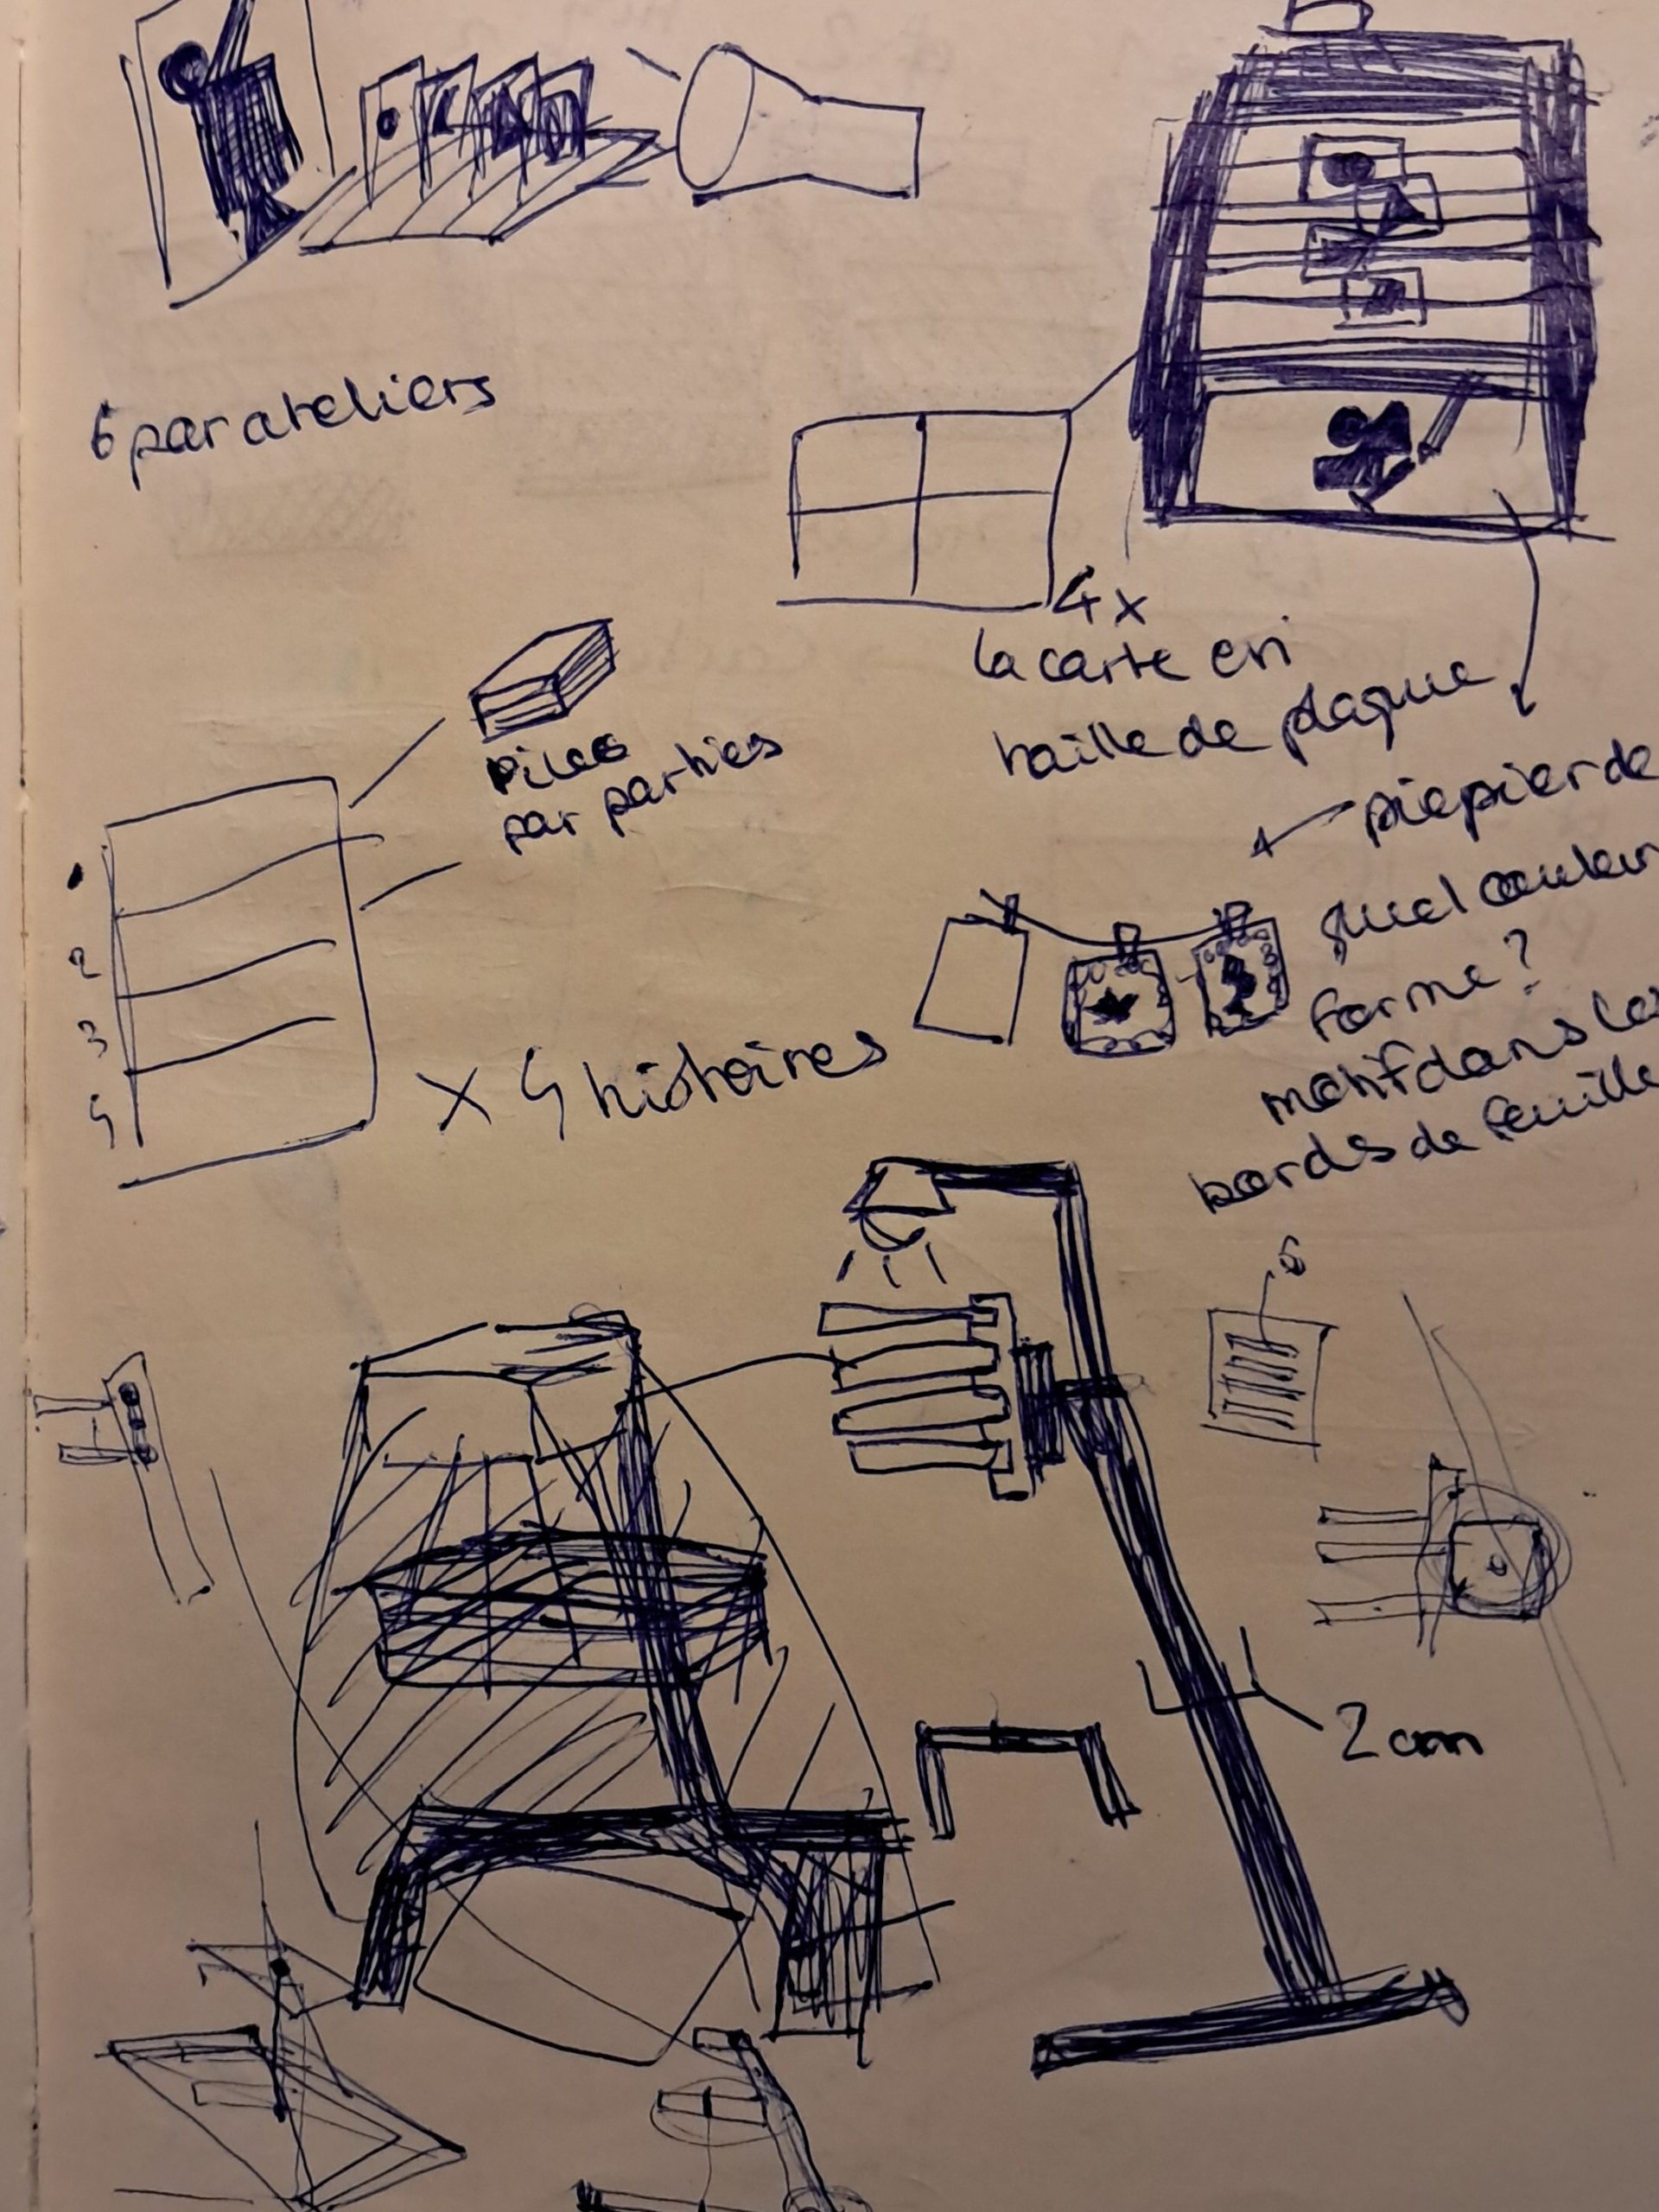 6 par ateliers
4x
la carte en
taille de plaque
Piles
par parties
piepier de
quel couleur
forme ?
motif dans les
bords de feuille
2
3
4
x 4 histoires
6
2 cm